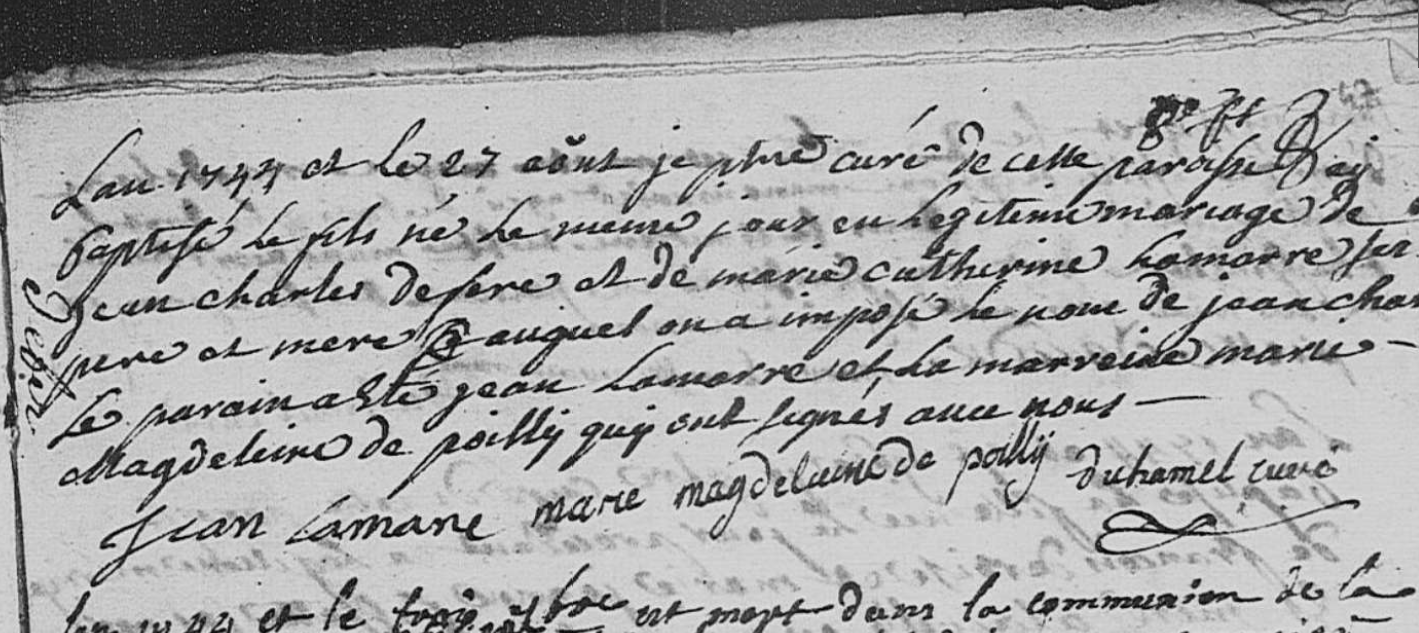 Lan 1744 et le 27 aôut je ptre curé de cette paroisse ay
baptisé le fils né le meme jour en legitime mariage de
jean charles defere et de marie catherine Lamarre ses
pere et mere auquel on a imposé le nom de jean char
le parain a esté jean Lamarre et La marreine marie
Magdeleine de poilly quy ont signés avec nous
Jean Lamare marie magdelaine de poilly duhamel curé
lan 1744 et le trois 7bre est mort dans la communion de la